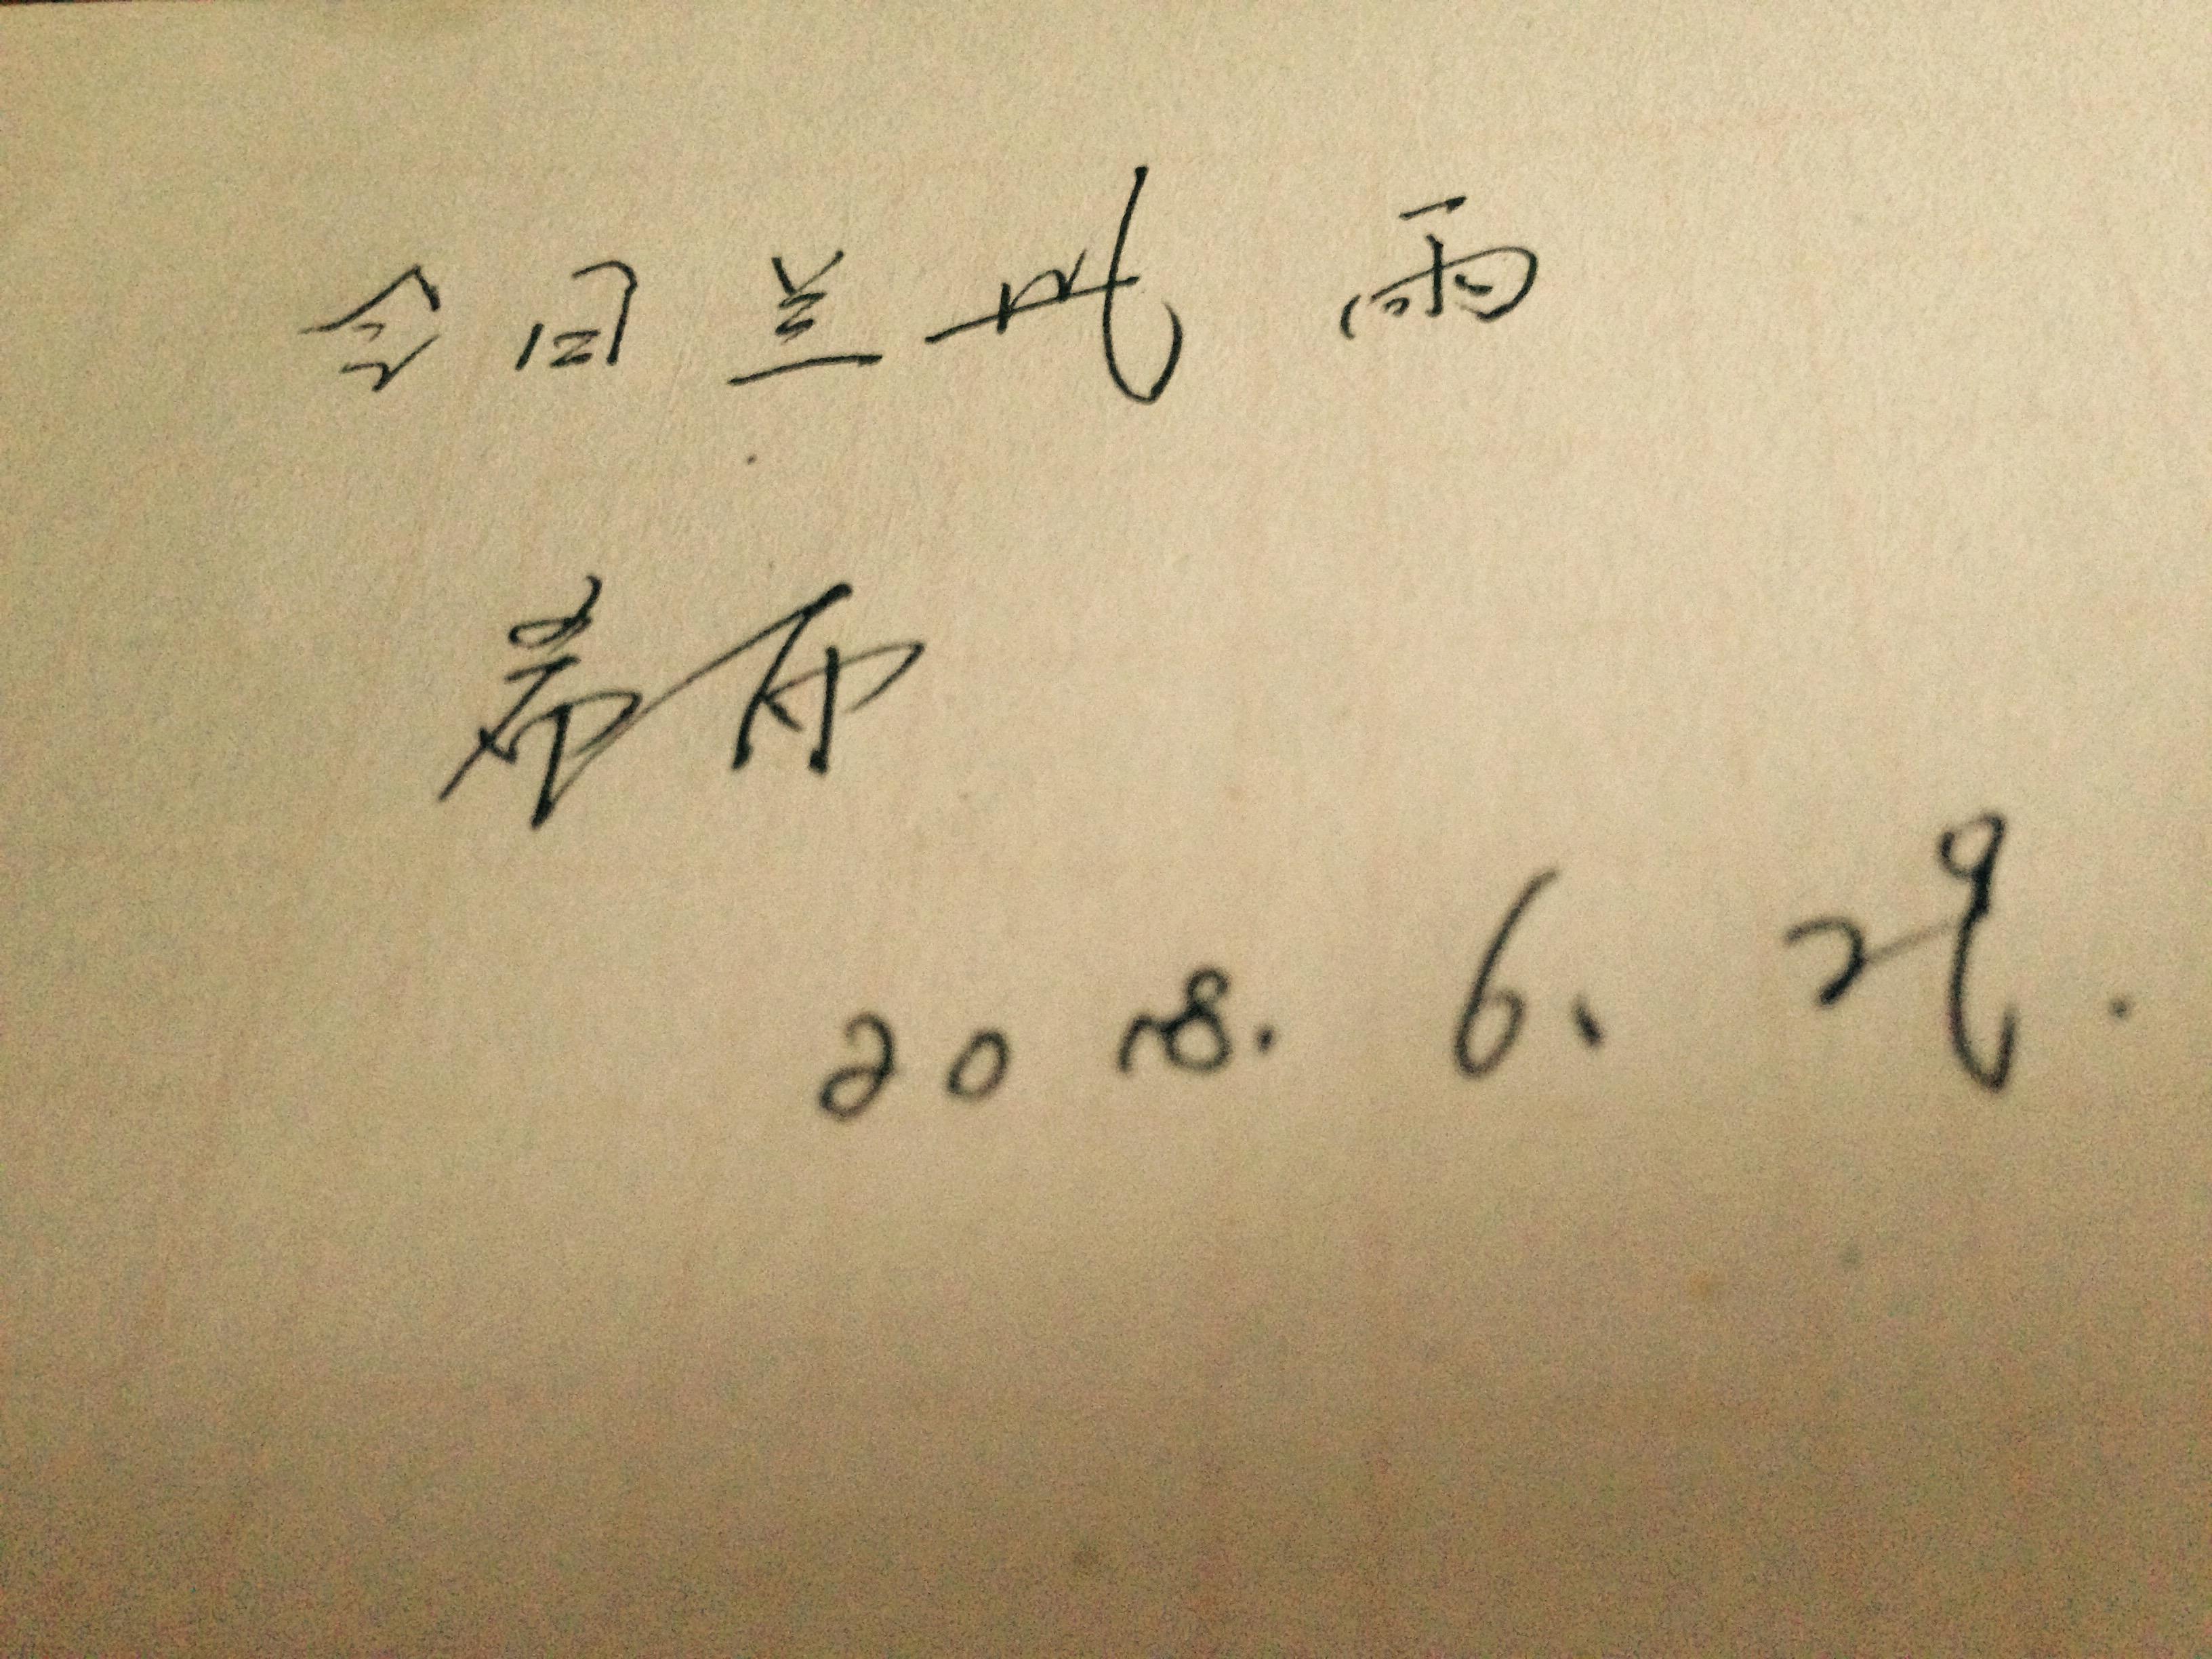 今日兰州雨
希雨
2018.6.29.